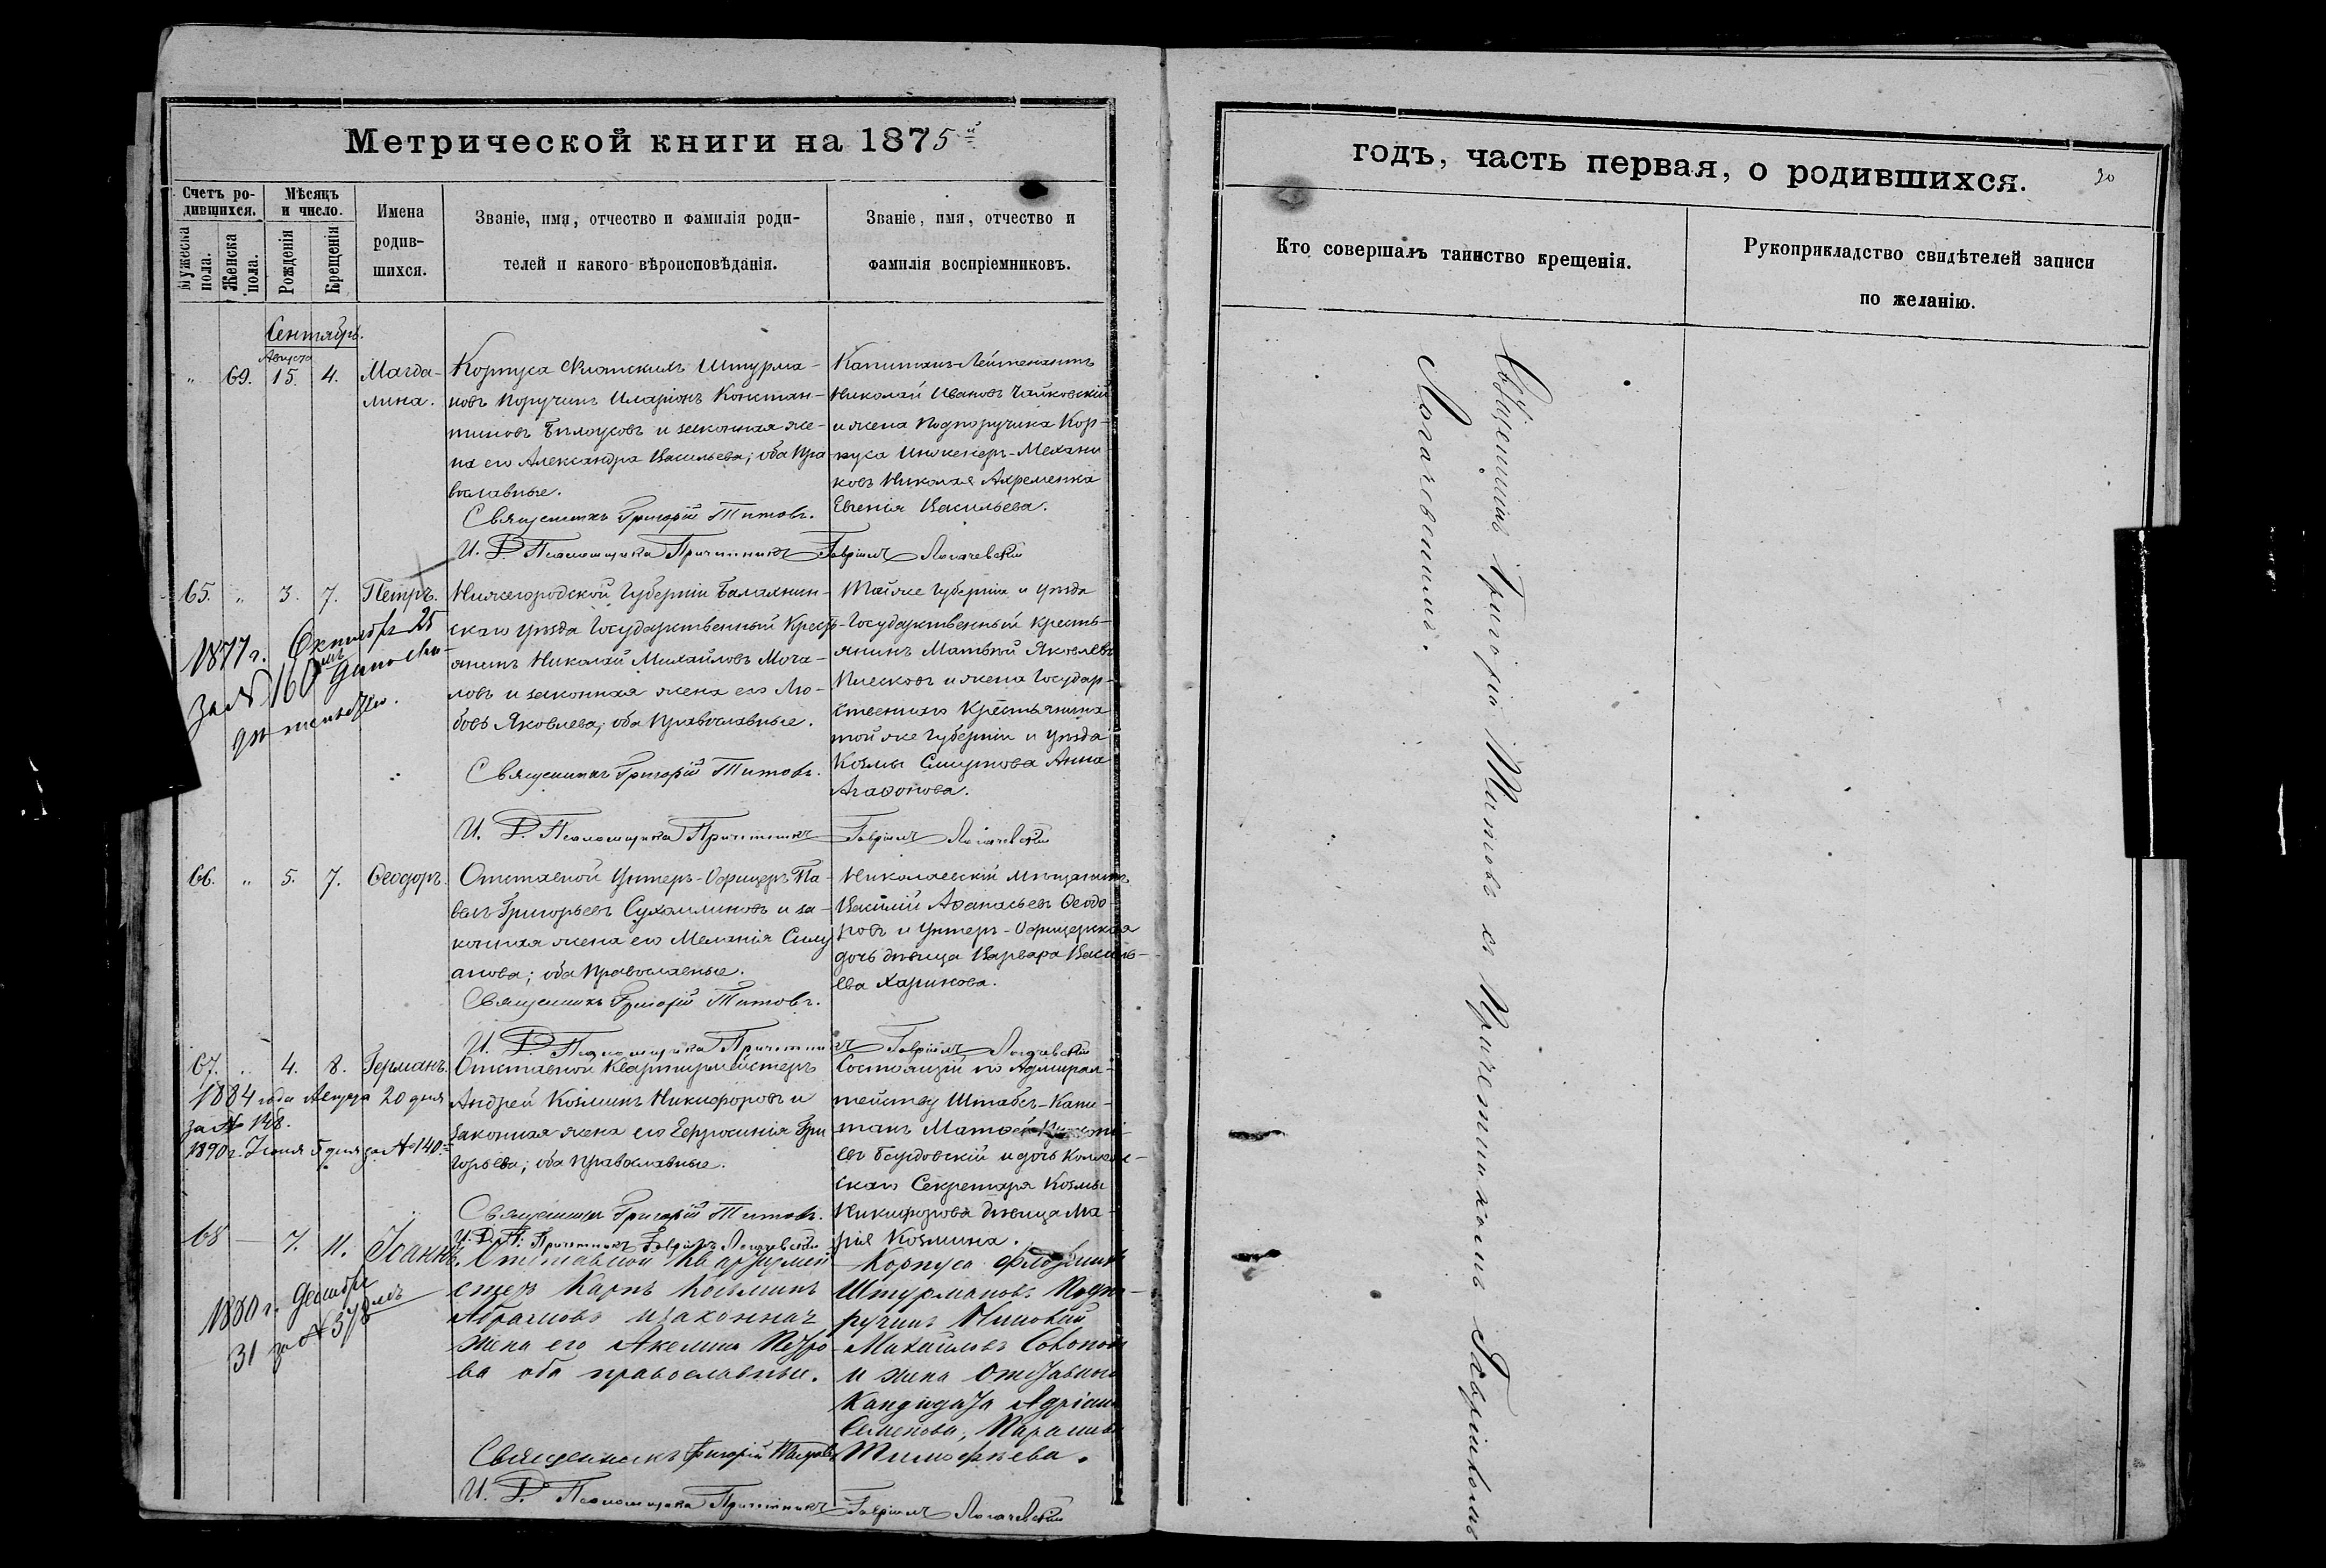 Метрической книги на 1875й
Счетъ ро-
дившихся.
Мужеска пола.
Женска пола.
Мѣсяцъ
и число.
Рожденія
Крещенія
Имена
родив-
шихся.
Званіе, имя, отчество и фамилія роди-
телей и какого вѣроисповѣданія.
Званіе, имя, отчество и
фамилія воспріемниковъ.
Сентябрь.
Августа
„ 69. 15. 4. Магда-
лина.
Корпуса Флотскихъ Штурма-
новъ Поручикъ Иларіонъ Констан-
тиновъ Бѣлоусовъ и законная же-
на его Александра Васильева; оба Пра
вославные.
Священникъ Григорій Титовъ.
И. Д. Псаломщика Причетникъ Гавріилъ Логачевскій
Капитанъ-Лейтенантъ
Николай Ивановъ Чайковскій
и жена Подпоручика Кор-
пуса Инженеръ-Механи
ковъ Николая Ахременка
Евгенія Васильева.
65. „ 3. 7. Петръ.
1877 г. Октября 25
за № 160мъ дано сви-
дѣтельство.
Нижегородской Губерніи Балахнин-
скаго уѣзда Государственный Кресть-
янинъ Николай Михайловъ Моча-
ловъ и законная жена его Лю-
бовь Яковлева; оба Православные.
Священникъ Григорій Титовъ.
И. Д. Псаломщика Причетникъ Гавріилъ Логачевскій
Той же губерніи и уѣзда
Государственный кресть-
янинъ Матвѣй Яковлевъ
Плесковъ и жена Государ-
ственнаго Крестьянина
той же губерніи и уѣзда
Козмы Смирнова Анна
Агафонова.
66. „ 5. 7. Ѳеодоръ.
Отставной Унтеръ-Офицеръ Па-
велъ Григорьевъ Сухомлиновъ и за-
конная жена его Меланія Силу
анова; оба Православные.
Священникъ Григорій Титовъ.
И. Д. Псаломщика Причетникъ Гавріилъ Логачевскій
Николаевскій мѣщанинъ
Василій Аѳанасьевъ Ѳеодо
ровъ и Унтеръ-Офицерская
дочь дѣвица Варвара Василь-
ева Харикова.
67. „ 4. 8. Германъ.
1884 года Августа 20 дня
за №
1890 г. Іюня 5 дня за № 140.
Отставной Квартирмейстеръ
Андрей Козминъ Никифоровъ и
законная жена его Евфросинія Гри
горьева; оба Православные.
Священникъ Григорій Титовъ.
И. Д. П. Причетникъ Гавріилъ Логачевскій
Состоящій по Адмирал-
тейству Штабсъ-Капи-
танъ
и дочь Коллеж-
скаго Секретаря Козмы
Никифорова дѣвица Ма-
рія Козмина.
68 — 7. 11. Іоаннъ.
1880 г. Декабря
31 за № 578мъ
Отставной Квартирмей
стеръ Карпъ Козминъ
Абрамовъ и законная
жена его Акелина Петро
ва оба православные.
Священникъ Григорій Титовъ
И. Д. Псаломщика Причетникъ Гавріилъ Логачевскій
Корпуса Флотскихъ
Штурмановъ Подпо-
ручикъ Николай
Михайловъ
и жена Отставнаго
Кандидата Адріана
Семенова, Параскева
Тимофѣева.
годъ, часть первая, о родившихся.
30
Кто совершалъ таинство крещенія.
Рукоприкладство свидѣтелей записи
по желанію.
Священникъ Григорій Титовъ съ Причетникомъ Гавріиломъ
Логачевскимъ.